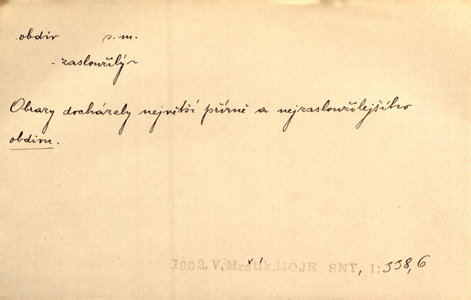 obdiv s. m.
- zasloužilý -
Obrazy docházely největší přízně a nejzasloužilejšího
obdivu.
1902, V. Mrštík, MOJE SNY, 1: 338, 6